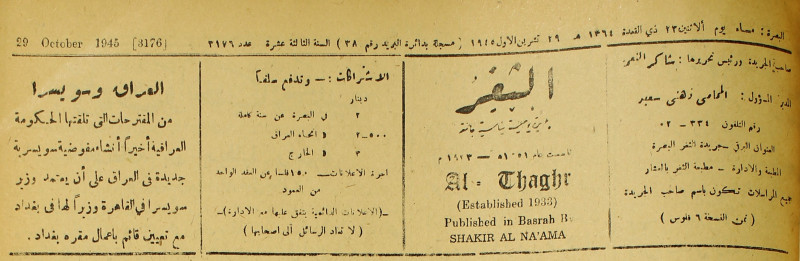 البصرة : مساء يوم الاثنين ٢٣ ذي القعدة ١٣٦٤ هـ ٢٩ تشرين الاول ١٩٤٥ ( مسجلة بدائرة البريد رقم ٣٨ ) السنة الثالثة عشرة عدد ٣١٧٦
29 October 1945 [3176]
صاحب الجريدة ورئيس تحريرها : شاكر النعمه
المدير المسؤول : المحامي زهني سعيد
رقم التلفون ٣٣٤ - ٥٢
العنوان البرقي - جريدة الثغر البصرة
الطبعة والادارة - مطبعة الثغر بالعشار
جميع المراسلات تكون باسم صاحب الجريدة
( ثمن النسخة ٦ فلوس )
الثغر
جريدة يومية سياسية جامعة
Al - Thaghr
(Established 1933)
Published in Basrah By
SHAKIR AL NA'AMA
الاشتراكات : - وتدفع سلفاً
دينار
٢ في البصرة عن سنة كاملة
٢-٥٠٠ « انحاء العراق
٣ « الخارج
اجرة الاعلانات - ١٥٠ فلساً عن العقد الواحد
من العمود
-( الاعلانات الدائمية يتفق عليها مع الادارة )-
( لا تعاد الرسائل الى اصحابها )
العراق وسويسرا
من المقترحات التي تلقتها الحكومة
العراقية أخيراً أنشاء مفوضية سويسرية
جديدة في العراق على أن يعتمد وزير
سويسرا في القاهرة وزيراً لها في بغداد
مع تعيين قائم باعمال مقره بغداد .